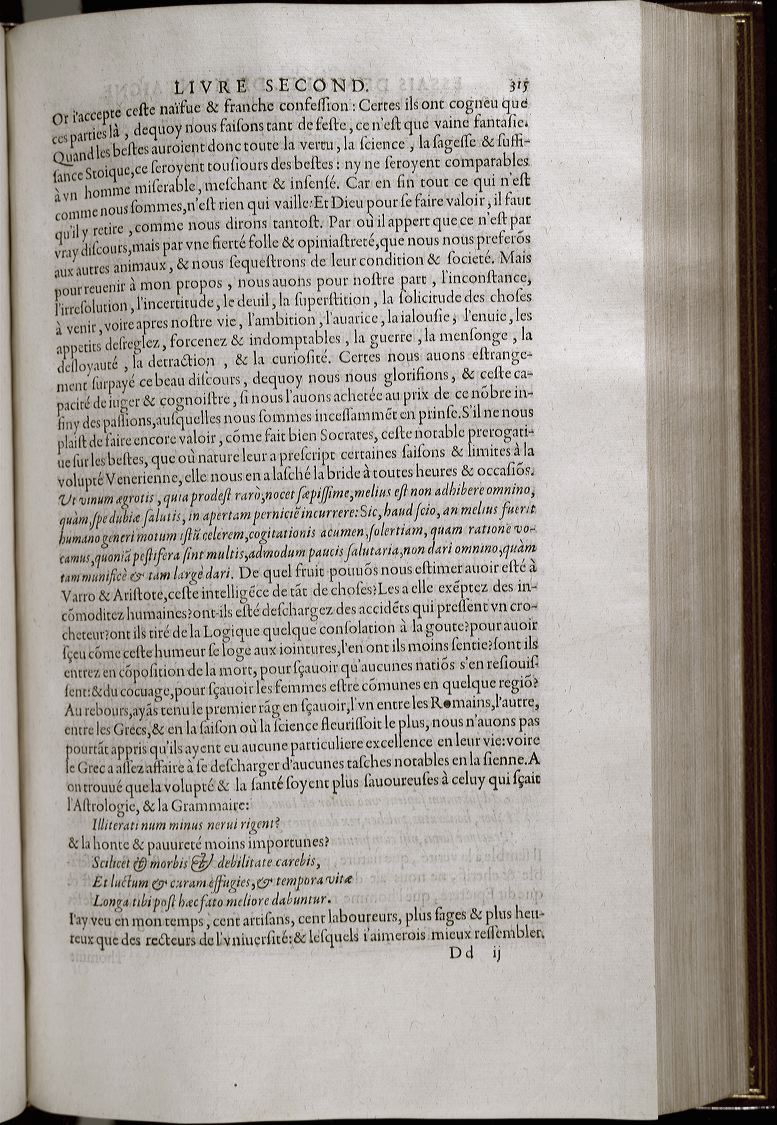 LIVRE SECOND. 315
Or i'accepte ceste naïfue & franche confession : Certes ils ont cogneu que
ces parties là , dequoy nous faisons tant de feste, ce n'est que vaine fantasie.
Quand les bestes auroient donc toute la vertu, la science , la sagesse & suffi-
sance Stoique,ce seroyent tousiours des bestes : ny ne seroyent comparables
à vn homme miserable, meschant & insensé. Car en fin tout ce qui n'est
comme nous sommes,n'est rien qui vaille:Et Dieu pour se faire valoir, il faut
qu'il y retire , comme nous dirons tantost. Par où il appert que ce n'est par
vray discours,mais par vne fierté folle & opiniastreté,que nous nous preferõs
aux autres animaux , & nous sequestrons de leur condition & societé. Mais
pour reuenir à mon propos , nous auons pour nostre part , l'inconstance,
l'irresolution , l'incertitude, le deuil, la superstition , la solicitude des choses
à venir, voire apres nostre vie, l'ambition , l'auarice, la ialousie , l'enuie, les
appetits desreglez, forcenez & indomptables , la guerre , la mensonge , la
desloyauté , la detraction , & la curiosité. Certes nous auons estrange-
ment surpayé ce beau discours , dequoy nous nous glorifions , & ceste ca-
pacité de iuger & cognoistre, si nous l'auons achetée au prix de ce nõbre in-
finy des passions,ausquelles nous sommes incessammẽt en prinse.S'il ne nous
plaist de faire encore valoir , cõme fait bien Socrates, ceste notable prerogati-
ue sur les bestes, que où nature leur a prescript certaines saisons & limites à la
volupté Venerienne, elle nous en a lasché la bride à toutes heures & occasiõs.
Vt vinum ægrotis , quia prodest rarò,nocet sæpissime,melius est non adhibere omnino,
quàm,spe dubiæ salutis, in apertam perniciẽ incurrere:Sic, haud scio, an melius fuerit
humano generi motum istũ celerem,cogitationis acumen,solertiam, quam rationẽ vo-
camus,quoniã pestifera sint multis,admodum paucis salutaria,non dari omnino,quàm
tam munificè & tam largè dari. De quel fruit pouuõs nous estimer auoir esté à
Varro & Aristote,ceste intelligẽce de tãt de choses?Les a elle exẽptez des in-
cõmoditez humaines?ont-ils esté deschargez des accidẽts qui pressent vn cro-
cheteur?ont ils tiré de la Logique quelque consolation à la goute?pour auoir
sçeu cõme ceste humeur se loge aux iointures,l'en ont ils moins sentie?sont ils
entrez en cõposition de la mort, pour sçauoir qu'aucunes natiõs s'en resiouis-
sent:& du cocuage,pour sçauoir les femmes estre cõmunes en quelque regiõ?
Au rebours,ayãs tenu le premier rãg en sçauoir,l'vn entre les Romains,l'autre,
entre les Grecs,& en la saison où la science fleurissoit le plus, nous n'auons pas
pourtãt appris qu'ils ayent eu aucune particuliere excellence en leur vie:voire
le Grec a assez affaire à se descharger d'aucunes tasches notables en la sienne.A
on trouué que la volupté & la santé soyent plus sauoureuses à celuy qui sçait
l'Astrologie, & la Grammaire:
Illiterati num minus nerui rigent?
& la honte & pauureté moins importunes?
Scilicet & morbis & debilitate carebis,
Et luctum & curam effugies, & tempora vitæ
Longa tibi post hæc fato meliore dabuntur.
I'ay veu en mon temps , cent artisans, cent laboureurs, plus sages & plus heu-
reux que des recteurs de l'vniuersité:& lesquels i'aimerois mieux ressembler.
Dd ij